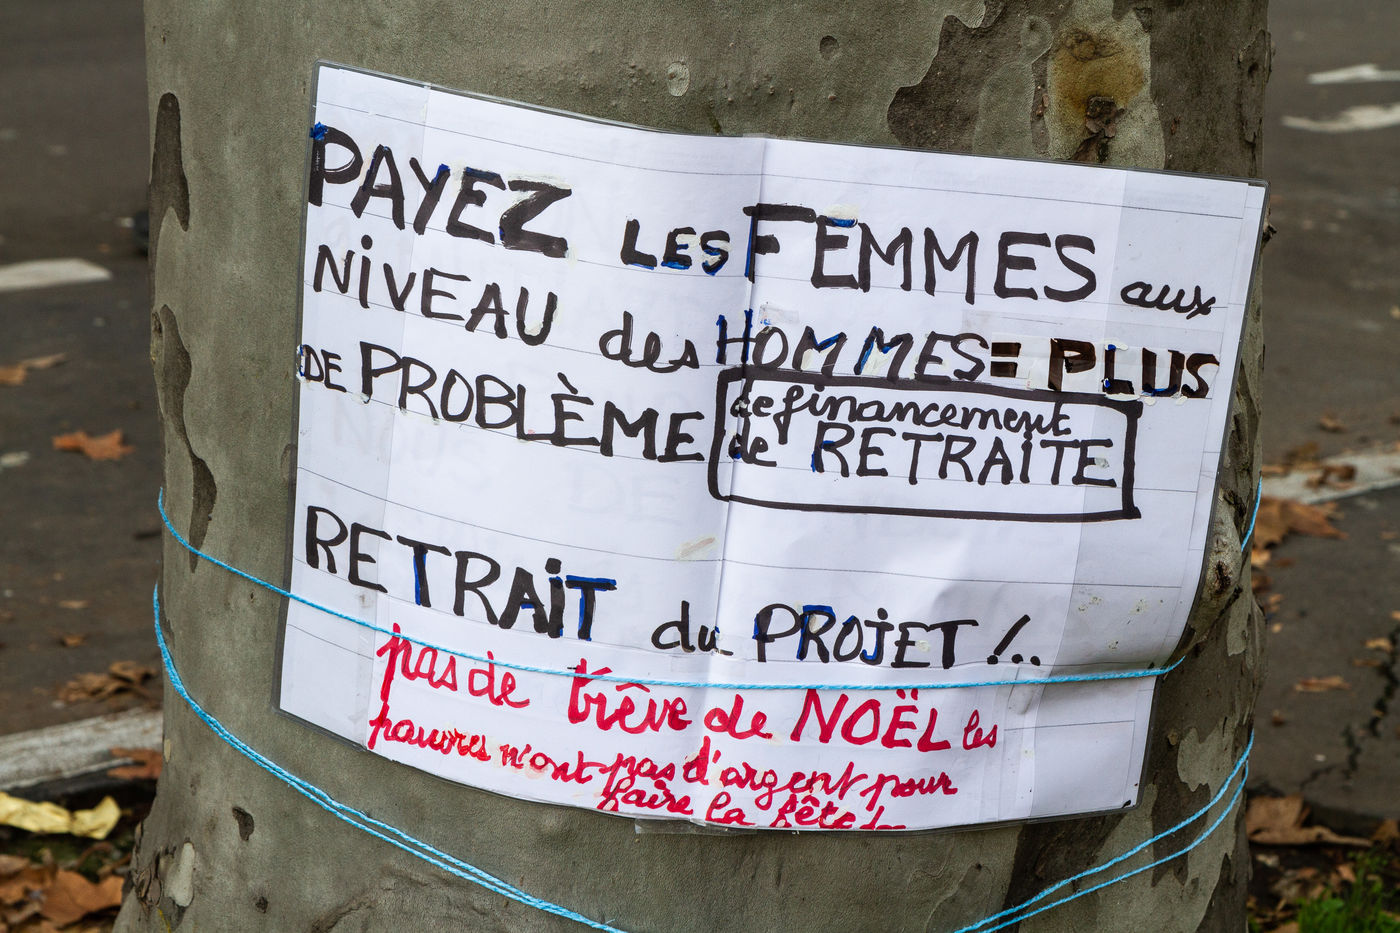 PAYEZ LES FEMMES aux
NIVEAU des HOMMES = PLUS
DE PROBLÈME de financement
de RETRAITE
RETRAIT du PROJET !..
pas de trêve de NOËL les
pauvres n'ont pas d'argent pour
faire la fête !